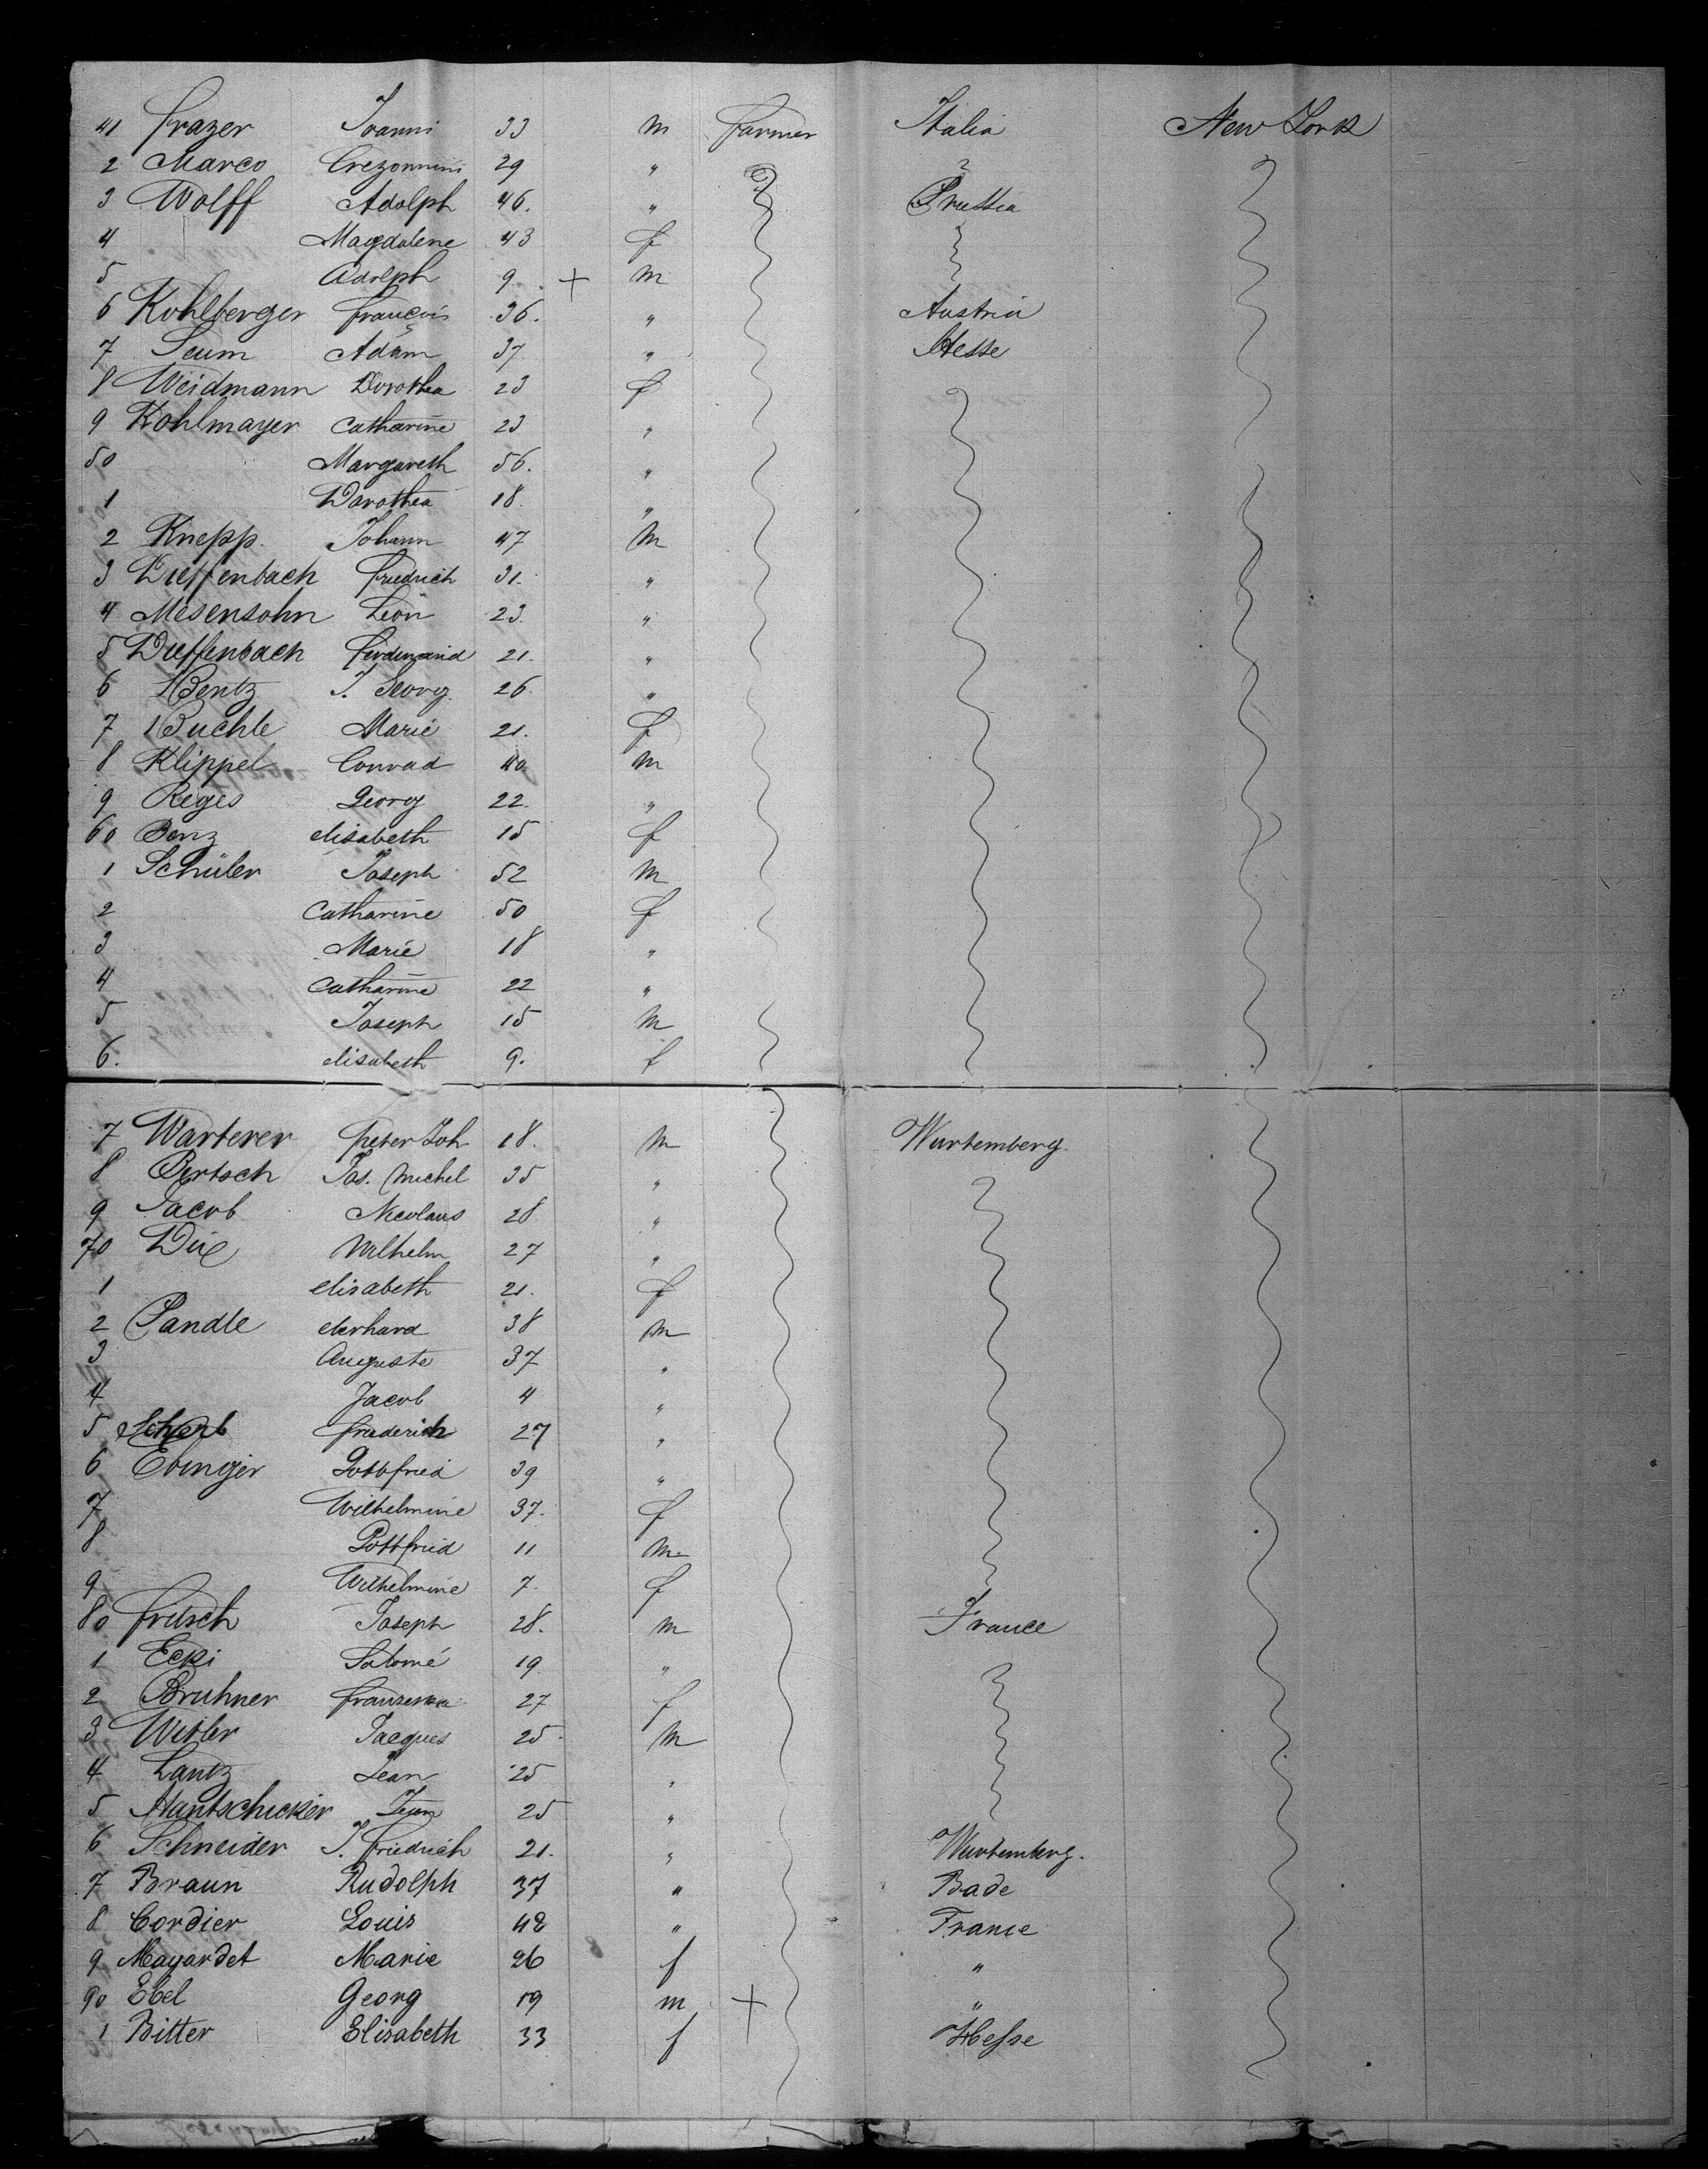 41 Frazer Ioanni 33 m Farmer Italia New York
2 Marco Crezonnini 29 " "
3 Wolff Adolph 46. " Prussia
4 Magdalene 43 f
5 Adolph 9. + m
6 Kohlberger François 36. " Austria
7 Seum Adam 37. " Hesse
8 Weidmann Dorothea 23 f
9 Kohlmayer Catharine 23 "
50 Margareth 56. "
1 Dorothea 18. "
2 Knepp Johann 47 m
3 Dieffenbach Friedrich 31. "
4 Mesensohn Leon 23. "
5 Dieffenbach Ferdinand 21. "
6 Bentz J. Georg 26. "
7 Buchle Marie 21. f
8 Klippel Conrad 40 m
9 Reges Georg 22. "
60 Benz elisabeth 15 f
1 Schüler Joseph 52 m
2 Catharine 50 f
3 Marie 18 "
4 Catharine 22 "
5 Joseph 15 m
6. elisabeth 9. f
7 Warterer Peter Joh 18. m Wurtemberg.
8 Bertsch Jos. Michel 35 "
9 Jacob Nicolaus 28 "
70 Dix Wilhelm 27 "
1 elisabeth 21. f
2 Pandle eberhard 38 m
3 Auguste 37 "
4 Jacob 4 "
5 Scherb Frederich 27 "
6 Ebinger Gottfried 39 "
7 Wilhelmine 37. f
8 Gottfried 11 m
9 Wilhelmine 7. f
80 Fritsch Joseph 28. m France
1 Ecki Salomé 19 "
2 Bruhner Franziska 27 f
3 Witler Jacques 25 m
4 Lantz Jean 25 "
5 Hantschicker Jean 25 "
6 Schneider J. Friedrich 21. " Wurtemberg.
7 Braun Rudolph 37 " Bade
8 Cordier Louis 48 " France
9 Mayardet Marie 26 f "
90 Ebel Georg 19 m + "
1 Bitter Elisabeth 33 f Hesse